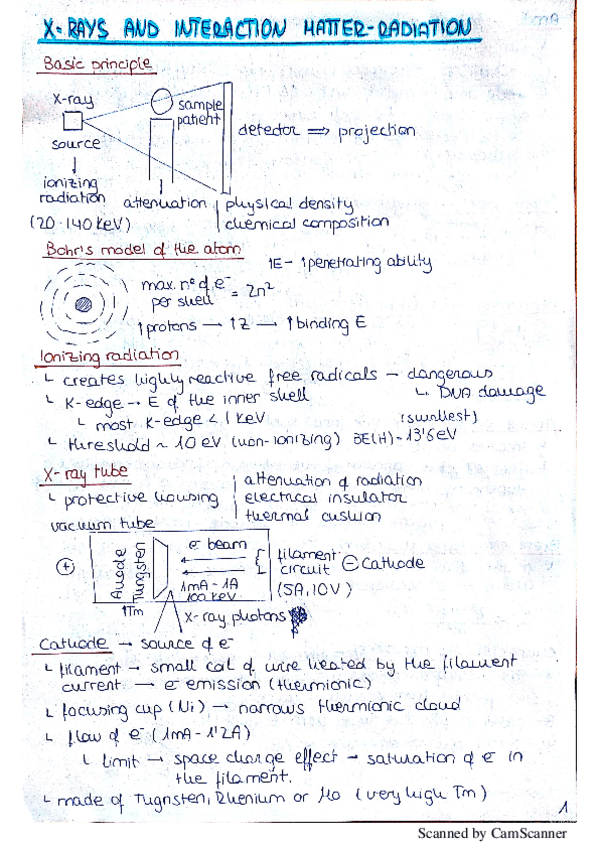 X-RAYS AND INTERACTION MATTER-RADIATION
Basic principle
X-ray
source
↓
ionizing
radiation
(20-140 keV)
sample
patient
attenuation
physical density
chemical composition
detector ⇒ projection
Bohr's model of the atom
↑E - ↑penetrating ability
max. nº of e⁻
per shell = 2n²
↑protons → ↑Z → ↑binding E
Ionizing radiation
↳ creates highly reactive free radicals - dangerous
↳ DNA damage
↳ K-edge → E of the inner shell
↳ most K-edge < 1 keV
(smallest)
↳ threshold ~ 10 eV (non-ionizing) BE(H) - 13'6eV
X-ray tube
↳ protective housing
attenuation of radiation
electrical insulator
thermal cushion
vacuum tube
+
Anode
Tungsten
↑Tm
e⁻ beam
1mA - 1A
100 keV
filament
circuit
(5A, 10V)
⊖ Cathode
X-ray photons
Cathode → source of e⁻
↳ filament → small coil of wire heated by the filament
current → e⁻ emission (thermionic)
↳ focusing cup (Ni) → narrows thermionic cloud
↳ flow of e⁻ (1mA - 1'2A)
↳ limit → space charge effect → saturation of e⁻ in
the filament.
↳ made of Tugnsten, Rhenium or Mo (very high Tm)
1
Scanned by CamScanner